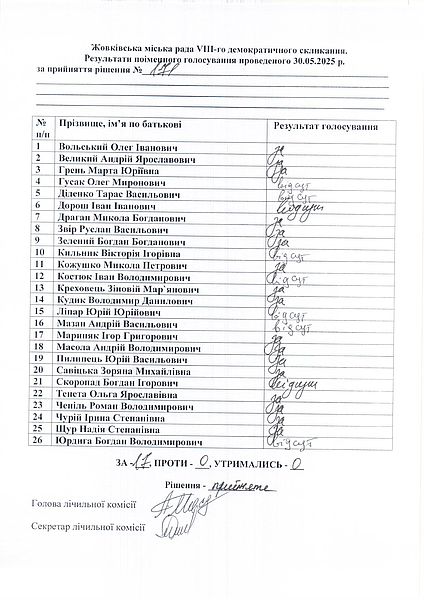 Жовківська міська рада VІІІ-го демократичного скликання.
Результати поіменного голосування проведеного 30.05.2025 р.
за прийняття рішення №
№ п/п Прізвище, ім’я по батькові Результат голосування
1 Вольський Олег Іванович за
2 Великий Андрій Ярославович за
3 Грень Марта Юріївна за
4 Гусак Олег Миронович відсут
5 Діденко Тарас Васильович відсут
6 Дорош Іван Іванович
7 Драган Микола Богданович за
8 Звір Руслан Васильович за
9 Зелений Богдан Богданович за
10 Кильник Вікторія Ігорівна відсут
11 Кожушко Микола Петрович за
12 Костюк Іван Володимирович відсут
13 Креховець Зіновій Мар`янович за
14 Кудик Володимир Данилович за
15 Ліпар Юрій Юрійович відсут
16 Мазан Андрій Васильович відсут
17 Мариняк Ігор Григорович за
18 Масола Андрій Володимирович за
19 Пилипець Юрій Васильович за
20 Савіцька Зоряна Михайлівна за
21 Скоропад Богдан Ігорович
22 Тенета Ольга Ярославівна за
23 Чепіль Роман Володимирович за
24 Чурій Ірина Степанівна за
25 Щур Надія Степанівна за
26 Юрдига Богдан Володимирович відсут
ЗА - 17, ПРОТИ - 0, УТРИМАЛИСЬ - 0
Рішення - прийнято
Голова лічильної комісії
Секретар лічильної комісії